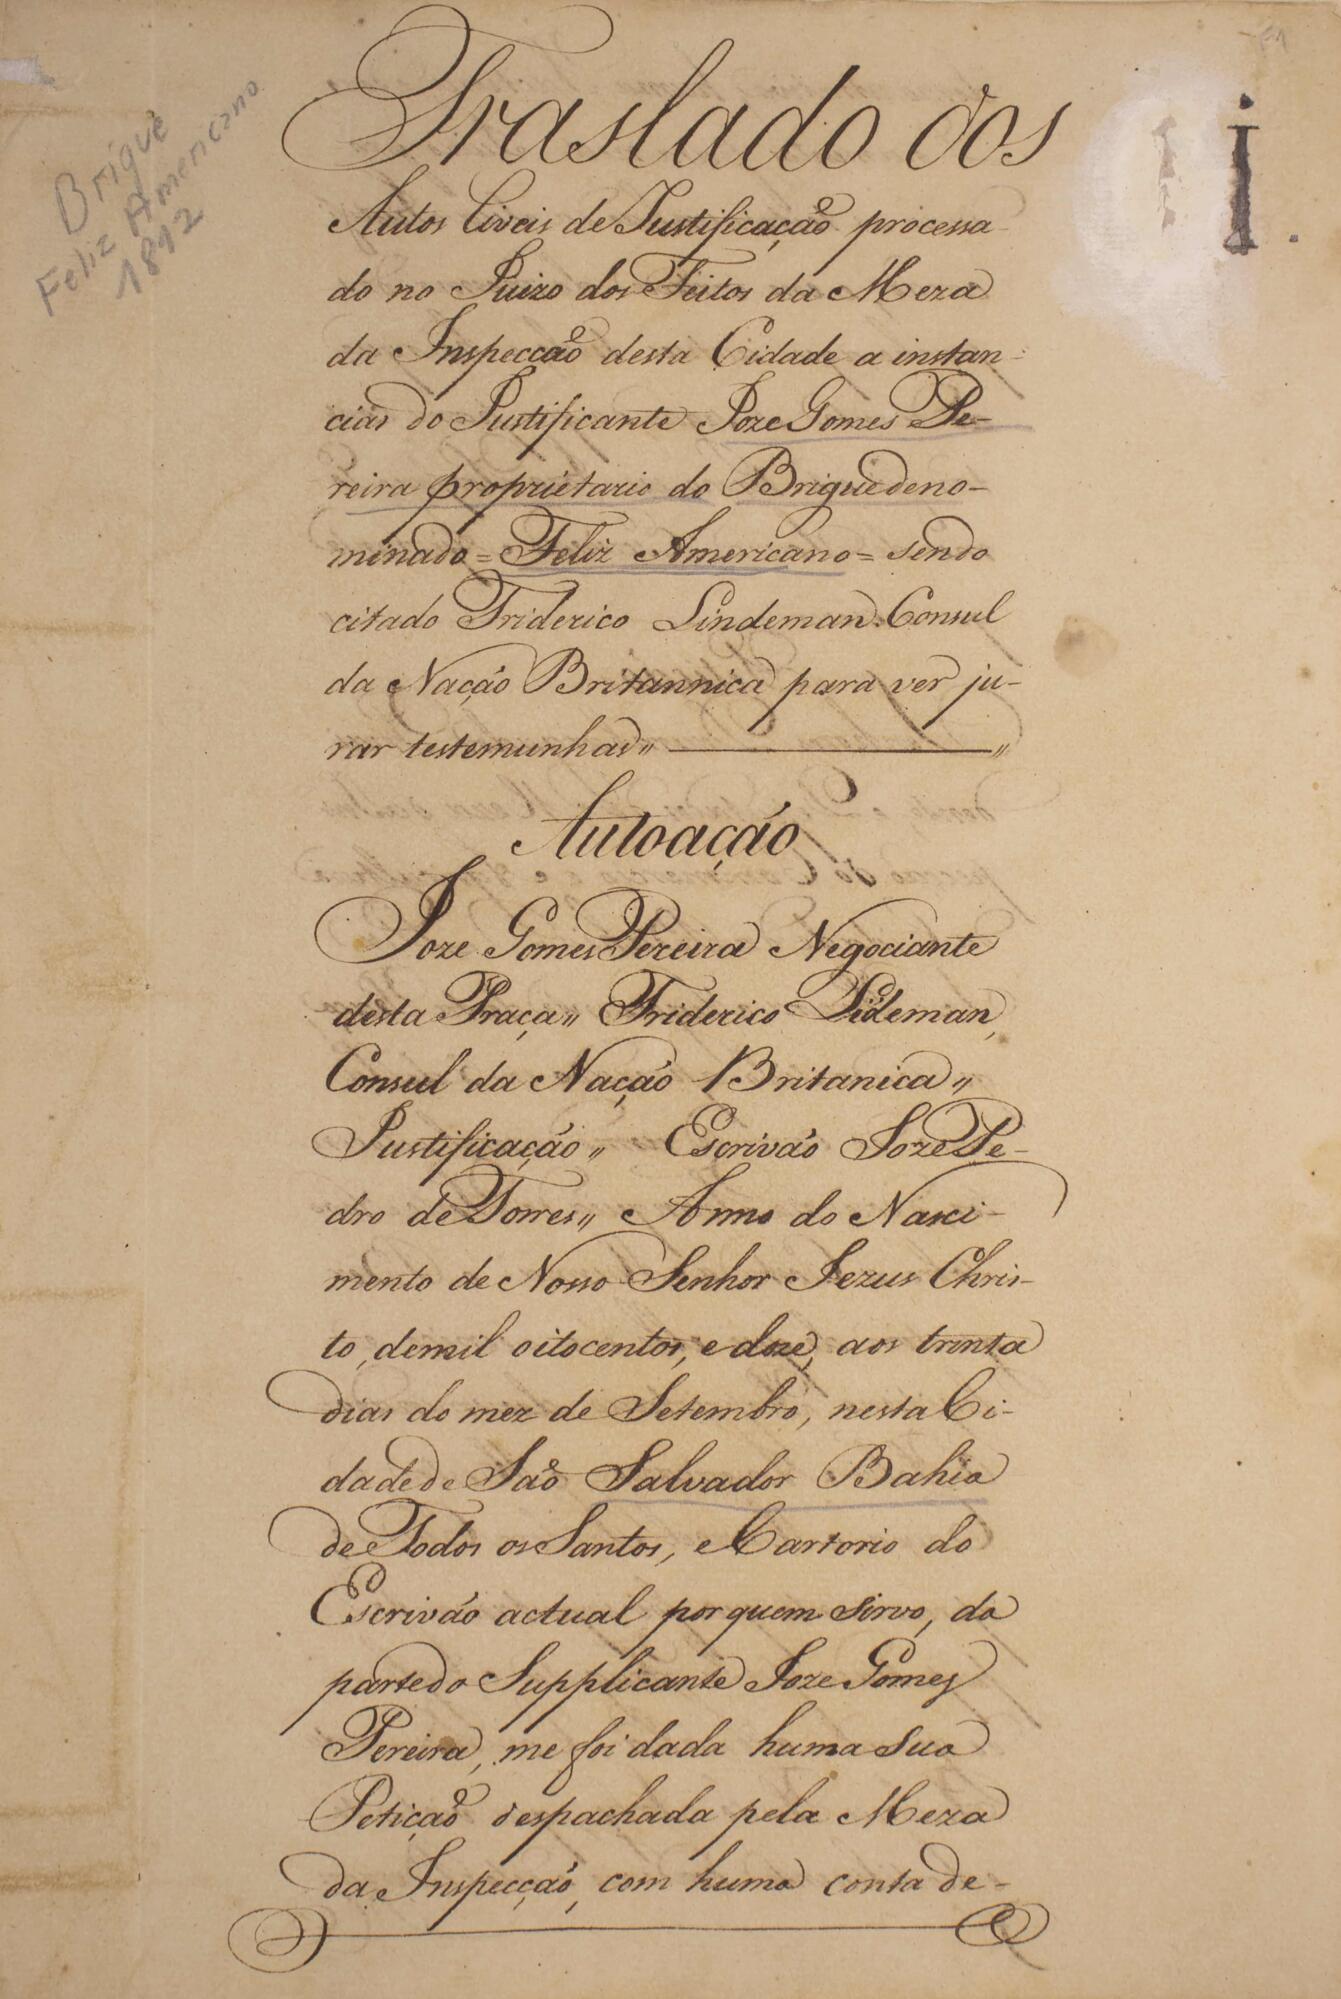 F1
Brigue
Feliz Americano
1812
I.
Traslado dos
Autos Civeis de Justificação processa-
do no Juizo dos Feitos da Meza
da Inspecção desta Cidade a instan-
cias do Justificante Joze Gomes Pe-
reira proprietario do Brigue deno-
minado = Feliz Americano = sendo
citado Friderico Lindeman Consul
da Nação Britannica para ver ju-
rar testemunhas,, ———— ,,
Autoação
Joze Gomes Pereira Negociante
desta Praça,, Friderico Lideman,
Consul da Nação Britanica,,
Justificação,, Escrivão Joze Pe-
dro de Torres,, Anno do Nasci-
mento de Nosso Senhor Jezus Chris-
to, demil oitocentos, e doze, aos trinta
dias do mez de Setembro, nesta Ci-
dade de São Salvador Bahia
de Todos os Santos, e Cartorio do
Escrivão actual por quem sirvo, da
parte do Supplicante Joze Gomes
Pereira, me foi dada huma sua
Petição despachada pela Meza
da Inspecção, com huma conta de-